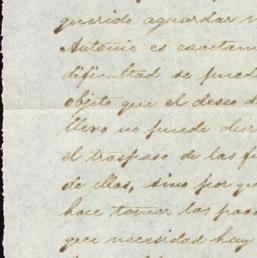 querido aguardar
Antonio es exactam
dificultad se pued
objeto que el deseo d
llevo no puede dur
el traspaso de las f
de ellas, sino por qu
hace temer los pas
que necesidad hay